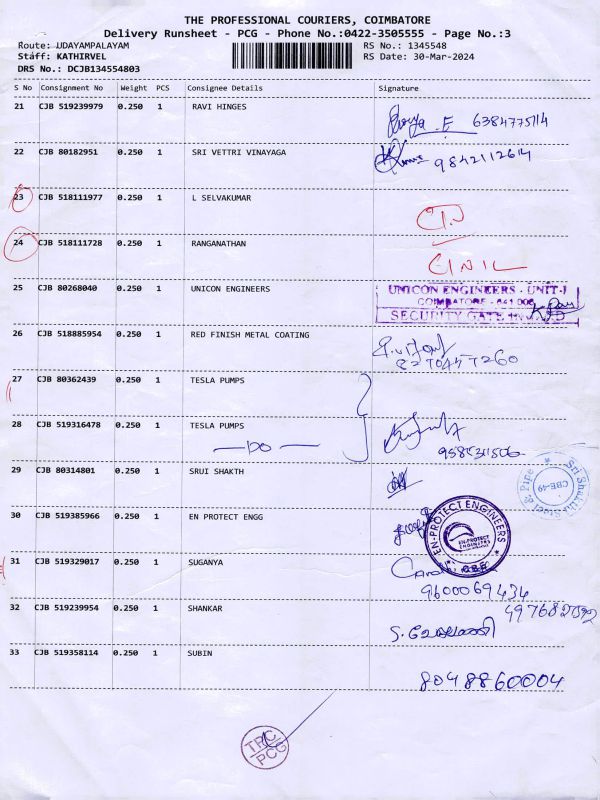 THE PROFESSIONAL COURIERS, COIMBATORE
Delivery Runsheet - PCG - Phone No.:0422-3505555 - Page No.:3
Route: UDAYAMPALAYAM RS No.: 1345548
Staff: KATHIRVEL RS Date: 30-Mar-2024
DRS No.: DCJB134554803
S No Consignment No Weight PCS Consignee Details Signature
21 CJB 519239979 0.250 1 RAVI HINGES 6384775114
22 CJB 80182951 0.250 1 SRI VETTRI VINAYAGA 9842112614
23 CJB 518111977 0.250 1 L SELVAKUMAR
24 CJB 518111728 0.250 1 RANGANATHAN
25 CJB 80268040 0.250 1 UNICON ENGINEERS
UNICON ENGINEERS - UNIT-I
COIMBATORE - 641 006
SECURITY GATE INWARD
26 CJB 518885954 0.250 1 RED FINISH METAL COATING
8270457260
27 CJB 80362439 0.250 1 TESLA PUMPS
28 CJB 519316478 0.250 1 TESLA PUMPS
DO
29 CJB 80314801 0.250 1 SRUI SHAKTH
Sri Shakthi Steel & Pipe
CBE-49
30 CJB 519385966 0.250 1 EN PROTECT ENGG
EN-PROTECT ENGINEERS
EN-PROTECT
ENGINEERS
31 CJB 519329017 0.250 1 SUGANYA
9600069434
32 CJB 519239954 0.250 1 SHANKAR
33 CJB 519358114 0.250 1 SUBIN
8048860004
TPC
PCG